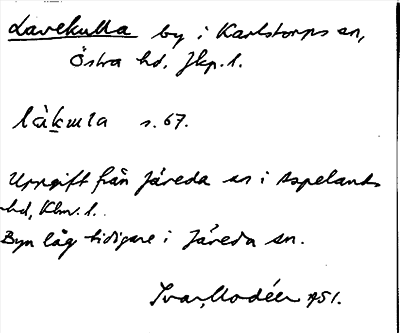 Lavekulla by i Karlstorps sn,
Östra hd, Jkp. l.
làkula s. 67.
Uppgift från Järeda sn i Aspelands
hd, Klm. l.
Byn låg tidigare i Järeda sn.
Ivar Modéer 1951.